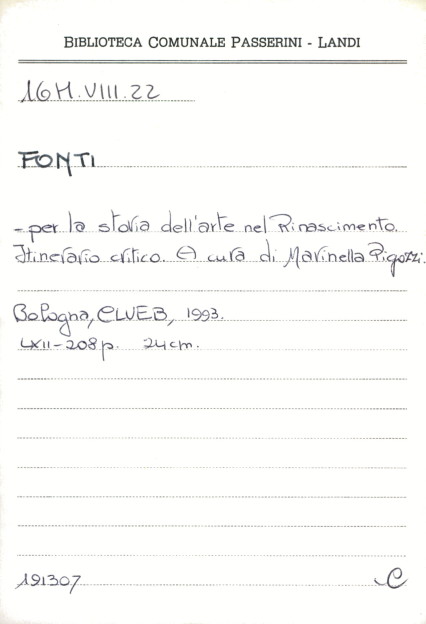 BIBLIOTECA COMUNALE PASSERINI - LANDI
16H.VIII.22
FONTI
- per la storia dell'arte nel Rinascimento.
Itinerario critico. A cura di Marinella Pigozzi.
Bologna, CLUEB, 1993.
LXII-208 p. 24 cm.
191307 C